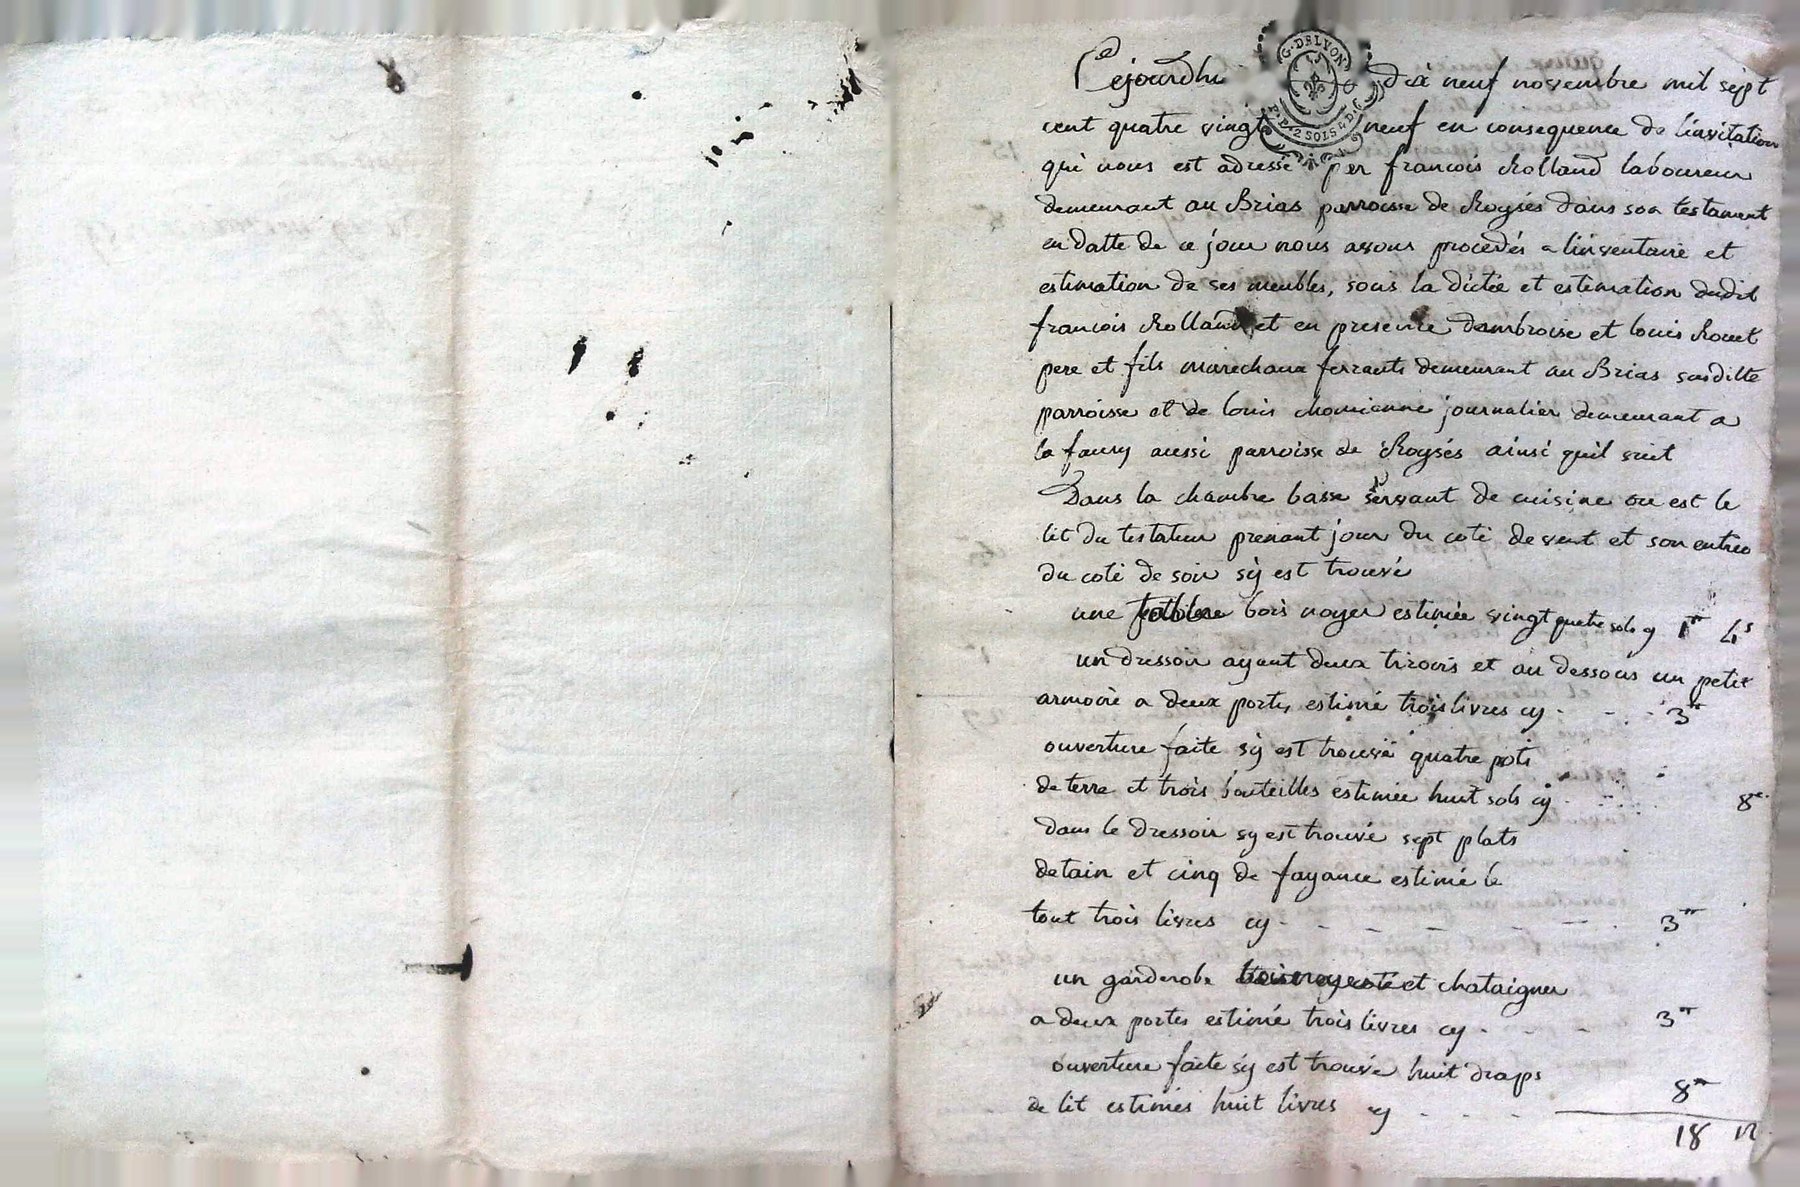 Cejourdhui dix neuf novembre mil sept
G. DE LYON
P.P. 2 SOLS 4 D.
cent quatre vingt neuf en consequence de linvitation
qui nous est adressé par francois Rolland laboureur
demeurant au Brias parroisse de Roysés dans son testament
en datte de ce jour nous avons procedés a linventaire et
estimation de ses meubles, sous la dictée et estimation dudit
francois Rolland et en presence dambroise et louis Rouet
pere et fils marechaux ferrants demeurant au Brias susditte
parroisse et de louis chomienne journalier demeurant a
la faury aussi parroisse de Roysés ainsi quil suit
Dans la chambre basse servant de cuisine ou est le
lit du testateur prenant jour du coté de vent et son entreé
du coté de soir sÿ est trouvé
une bois noyer estimée vingt quatre sols cy 1tt 4s
un dressoir ayant deux tiroirs et au dessous un petit
armoire a deux portes estimé trois livres cy 3tt
ouverture faite sÿ est trouvé quatre pots
de terre et trois bouteilles estimée huit sols cÿ 8s
dans le dressoir sy est trouvé sept plats
detain et cinq de fayance estimé le
tout trois livres cy 3tt
un garderobe et chataigner
a deux portes estimé trois livres cy 3tt
ouverture faite sÿ est trouvé huit draps
de lit estimés huit livres cy 8tt
18 12